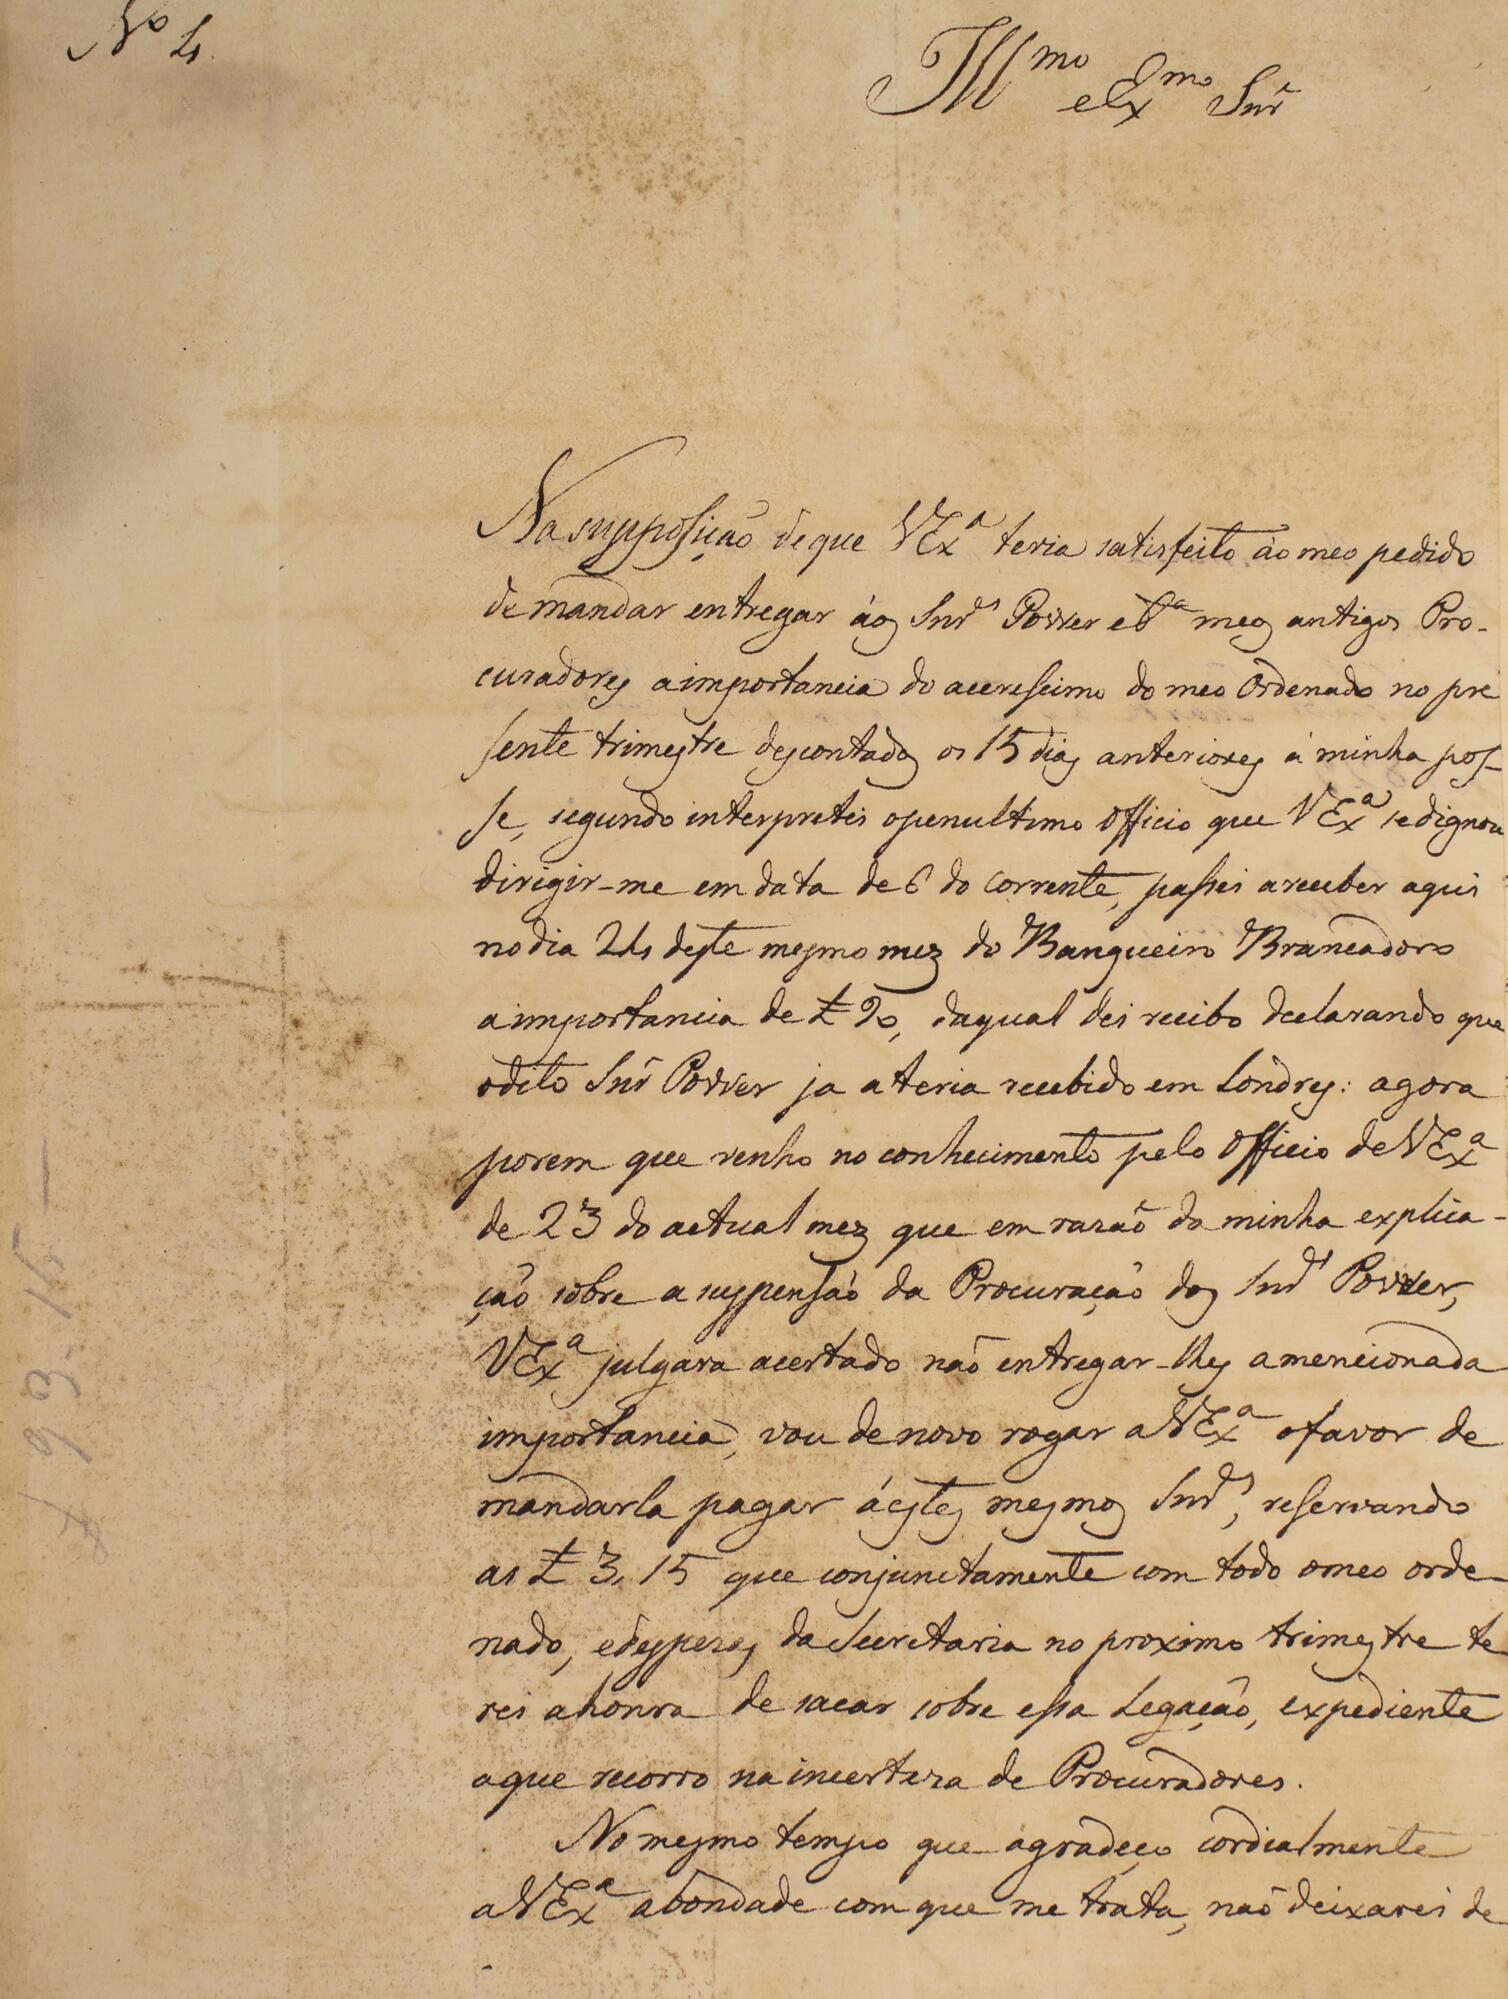 Nº 4.
Illmo e Exmo Snr
Na supposição de que VExa teria satisfeito ào meo pedido
de mandar entregar áos Snres Power e Ca meos antigos Pro-
curadores a importancia do acerescimo do meo Ordenado no pre
sente trimestre descontados os 15 dias anteriores á minha pos-
se, segundo interpretei o penultimo Officio que VExa se dignou
dirigir-me em data de 6 do corrente, passei a receber aqui
no dia 24 deste mesmo mez do Bangueiro Brancadoro
a importancia de £ 90, da qual dei recibo declarando que
o dito Snr Power ja a teria recebido em Londres: agora
porem que venho no conhecimento pelo Officio de VExa
de 23 do actual mez que em razaõ da minha explica-
çaõ sobre a suspensaõ da Procuraçaõ dos Snres Power,
VExa julgara acertado naõ entregar-lhes a mencionada
importancia, vou de novo rogar a VExa o favor de
mandarla pagar á estes mesmos Snres, reservando
as £ 3, 15 que conjunctamente com todo o meo orde-
nado, e despezas da Secretaria no proximo trimestre te
rei a honra de sacar sobre essa Legaçaõ, expediente
a que recorro na incerteza de Procuradores.
No mesmo tempo que agradeço cordialmente
a VExa a bondade com que me trata, naõ deixarei de
£ 93. 15 —